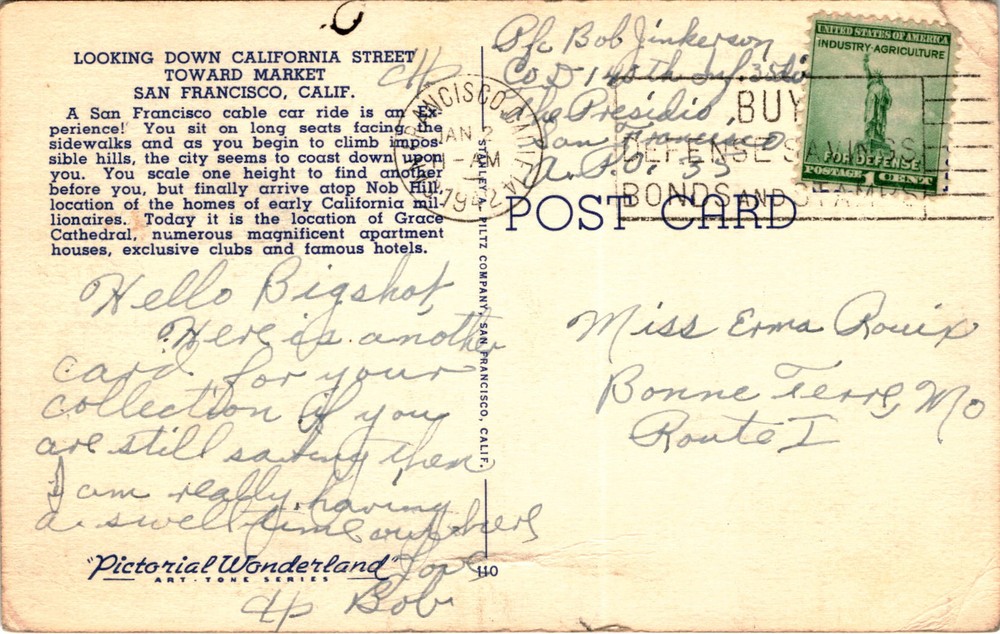 LOOKING DOWN CALIFORNIA STREET
TOWARD MARKET
SAN FRANCISCO, CALIF.
A San Francisco cable car ride is an ex-
perience! You sit on long seats facing the
sidewalks and as you begin to climb impos-
sible hills, the city seems to coast down upon
you. You scale one height to find another
before you, but finally arrive atop Nob Hill,
location of the homes of early California mil-
lionaires. Today it is the location of Grace
Cathedral, numerous magnificent apartment
houses, exclusive clubs and famous hotels.
Hello Bigshot,
Here is another
card for your
collection if you
are still saving them
I am really having
a swell time out here
Love
Bob
"Pictorial Wonderland"
ART-TONE SERIES
110
STANLEY A. PILTZ COMPANY, SAN FRANCISCO, CALIF.
SAN FRANCISCO, CALIF.
JAN 2
11-AM
1942
Pfc Bob Jinkerson
Co D 140th Inf. 35th
The Presidio,
San Francisco
A.P.O. 35
BUY
DEFENSE SAVINGS
BONDS AND STAMPS
UNITED STATES OF AMERICA
INDUSTRY·AGRICULTURE
FOR DEFENSE
POSTAGE 1 CENT
POST CARD
Miss Erma Rouix
Bonne Terre, Mo
Route I